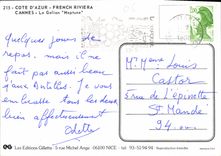 215 - COTE D'AZUR - FRENCH RIVIERA
CANNES - Le Galion "Neptune"
Quelques jours de
repos, mais il ne
fait pas aussi beau
qu'aux Antilles. Je vous
embrasse tous les deux
bien affectueusement
Odette
Mr Mme Louis
Castor
5 rue de l'Epinette
St Mandé
94
Les Editions Gilletta - 5 rue Michel Ange - 06100 NICE - Tél. 93-52 94 94